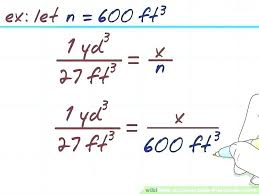 ex: let n = 600 ft³
1 yd³ / 27 ft³ = x / n
1 yd³ / 27 ft³ = x / 600 ft³
wiki